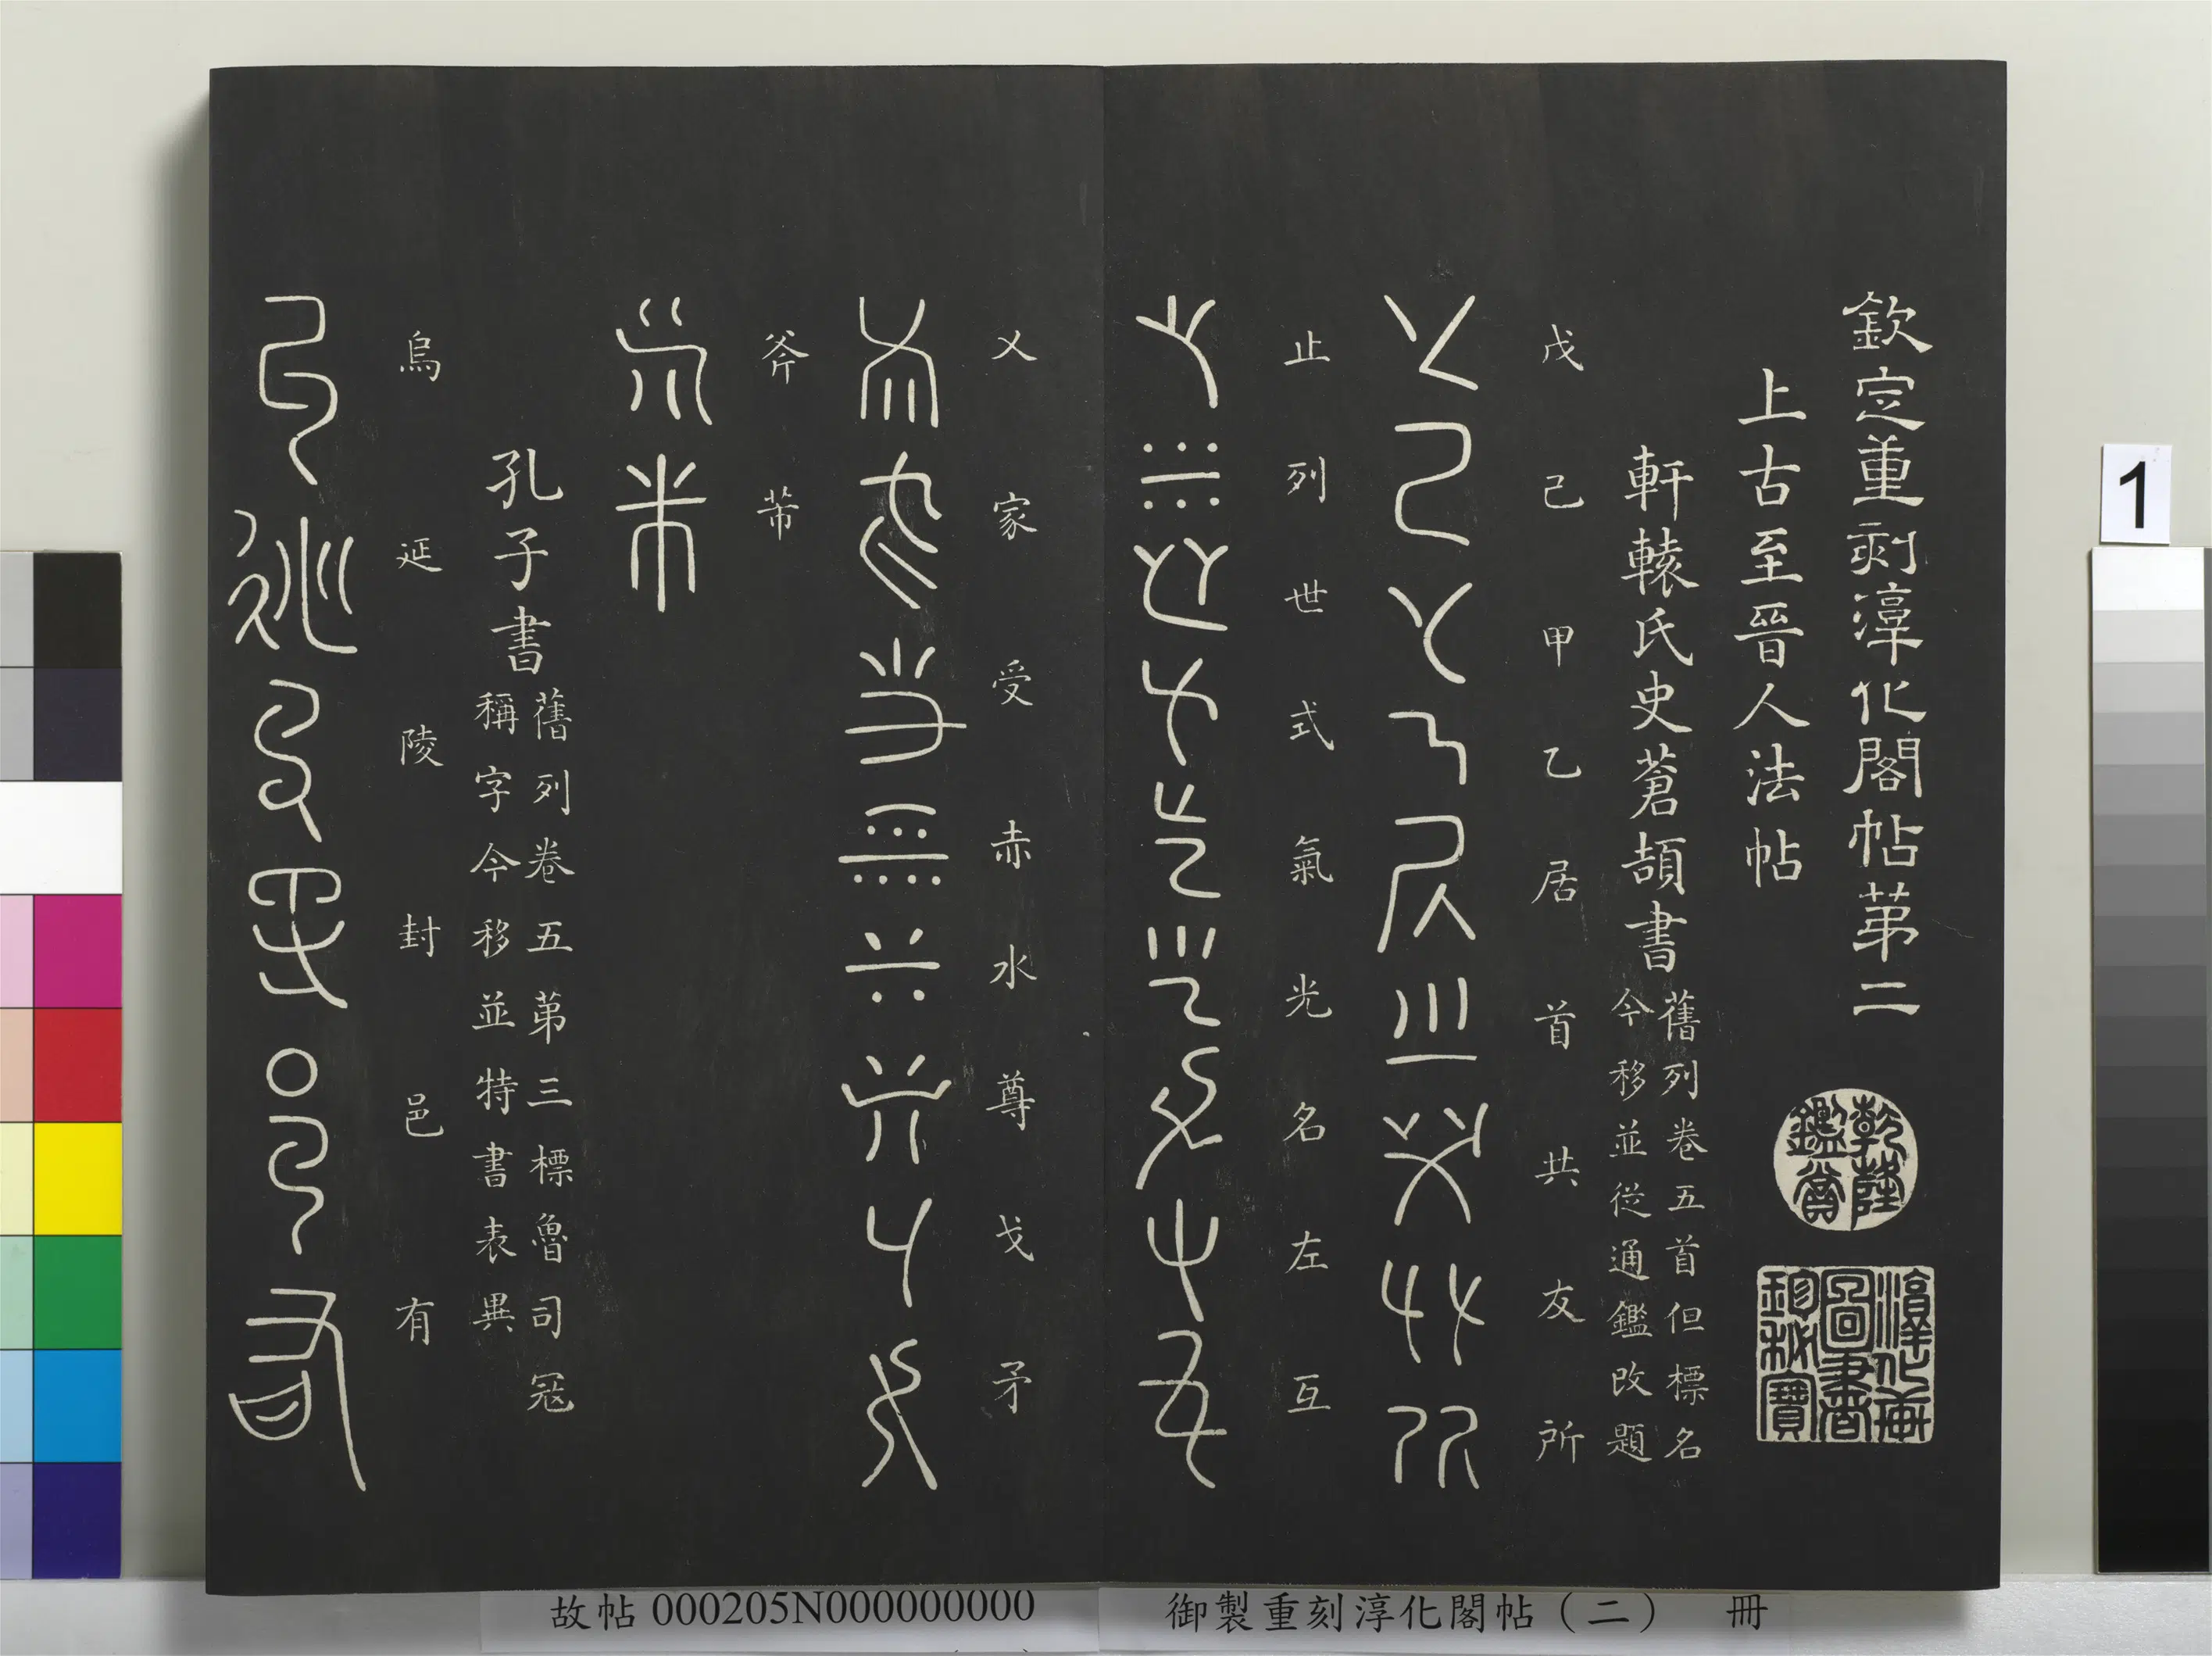 欽定重刻淳化閣帖第二
乾隆
鑑賞
淳化軒
圖書
珍秘寶
上古至晉人法帖
軒轅氏史蒼頡書
舊列卷五首但標名
今移並從通鑑改題
戊己甲乙居首共友所
止列世式氣光名左互
乂家受赤水尊戈矛
斧芾
孔子書
舊列卷五第三標魯司冦
稱字今移並特書表異
烏延陵封邑有
1
故帖000205N000000000
御製重刻淳化閣帖(二) 冊